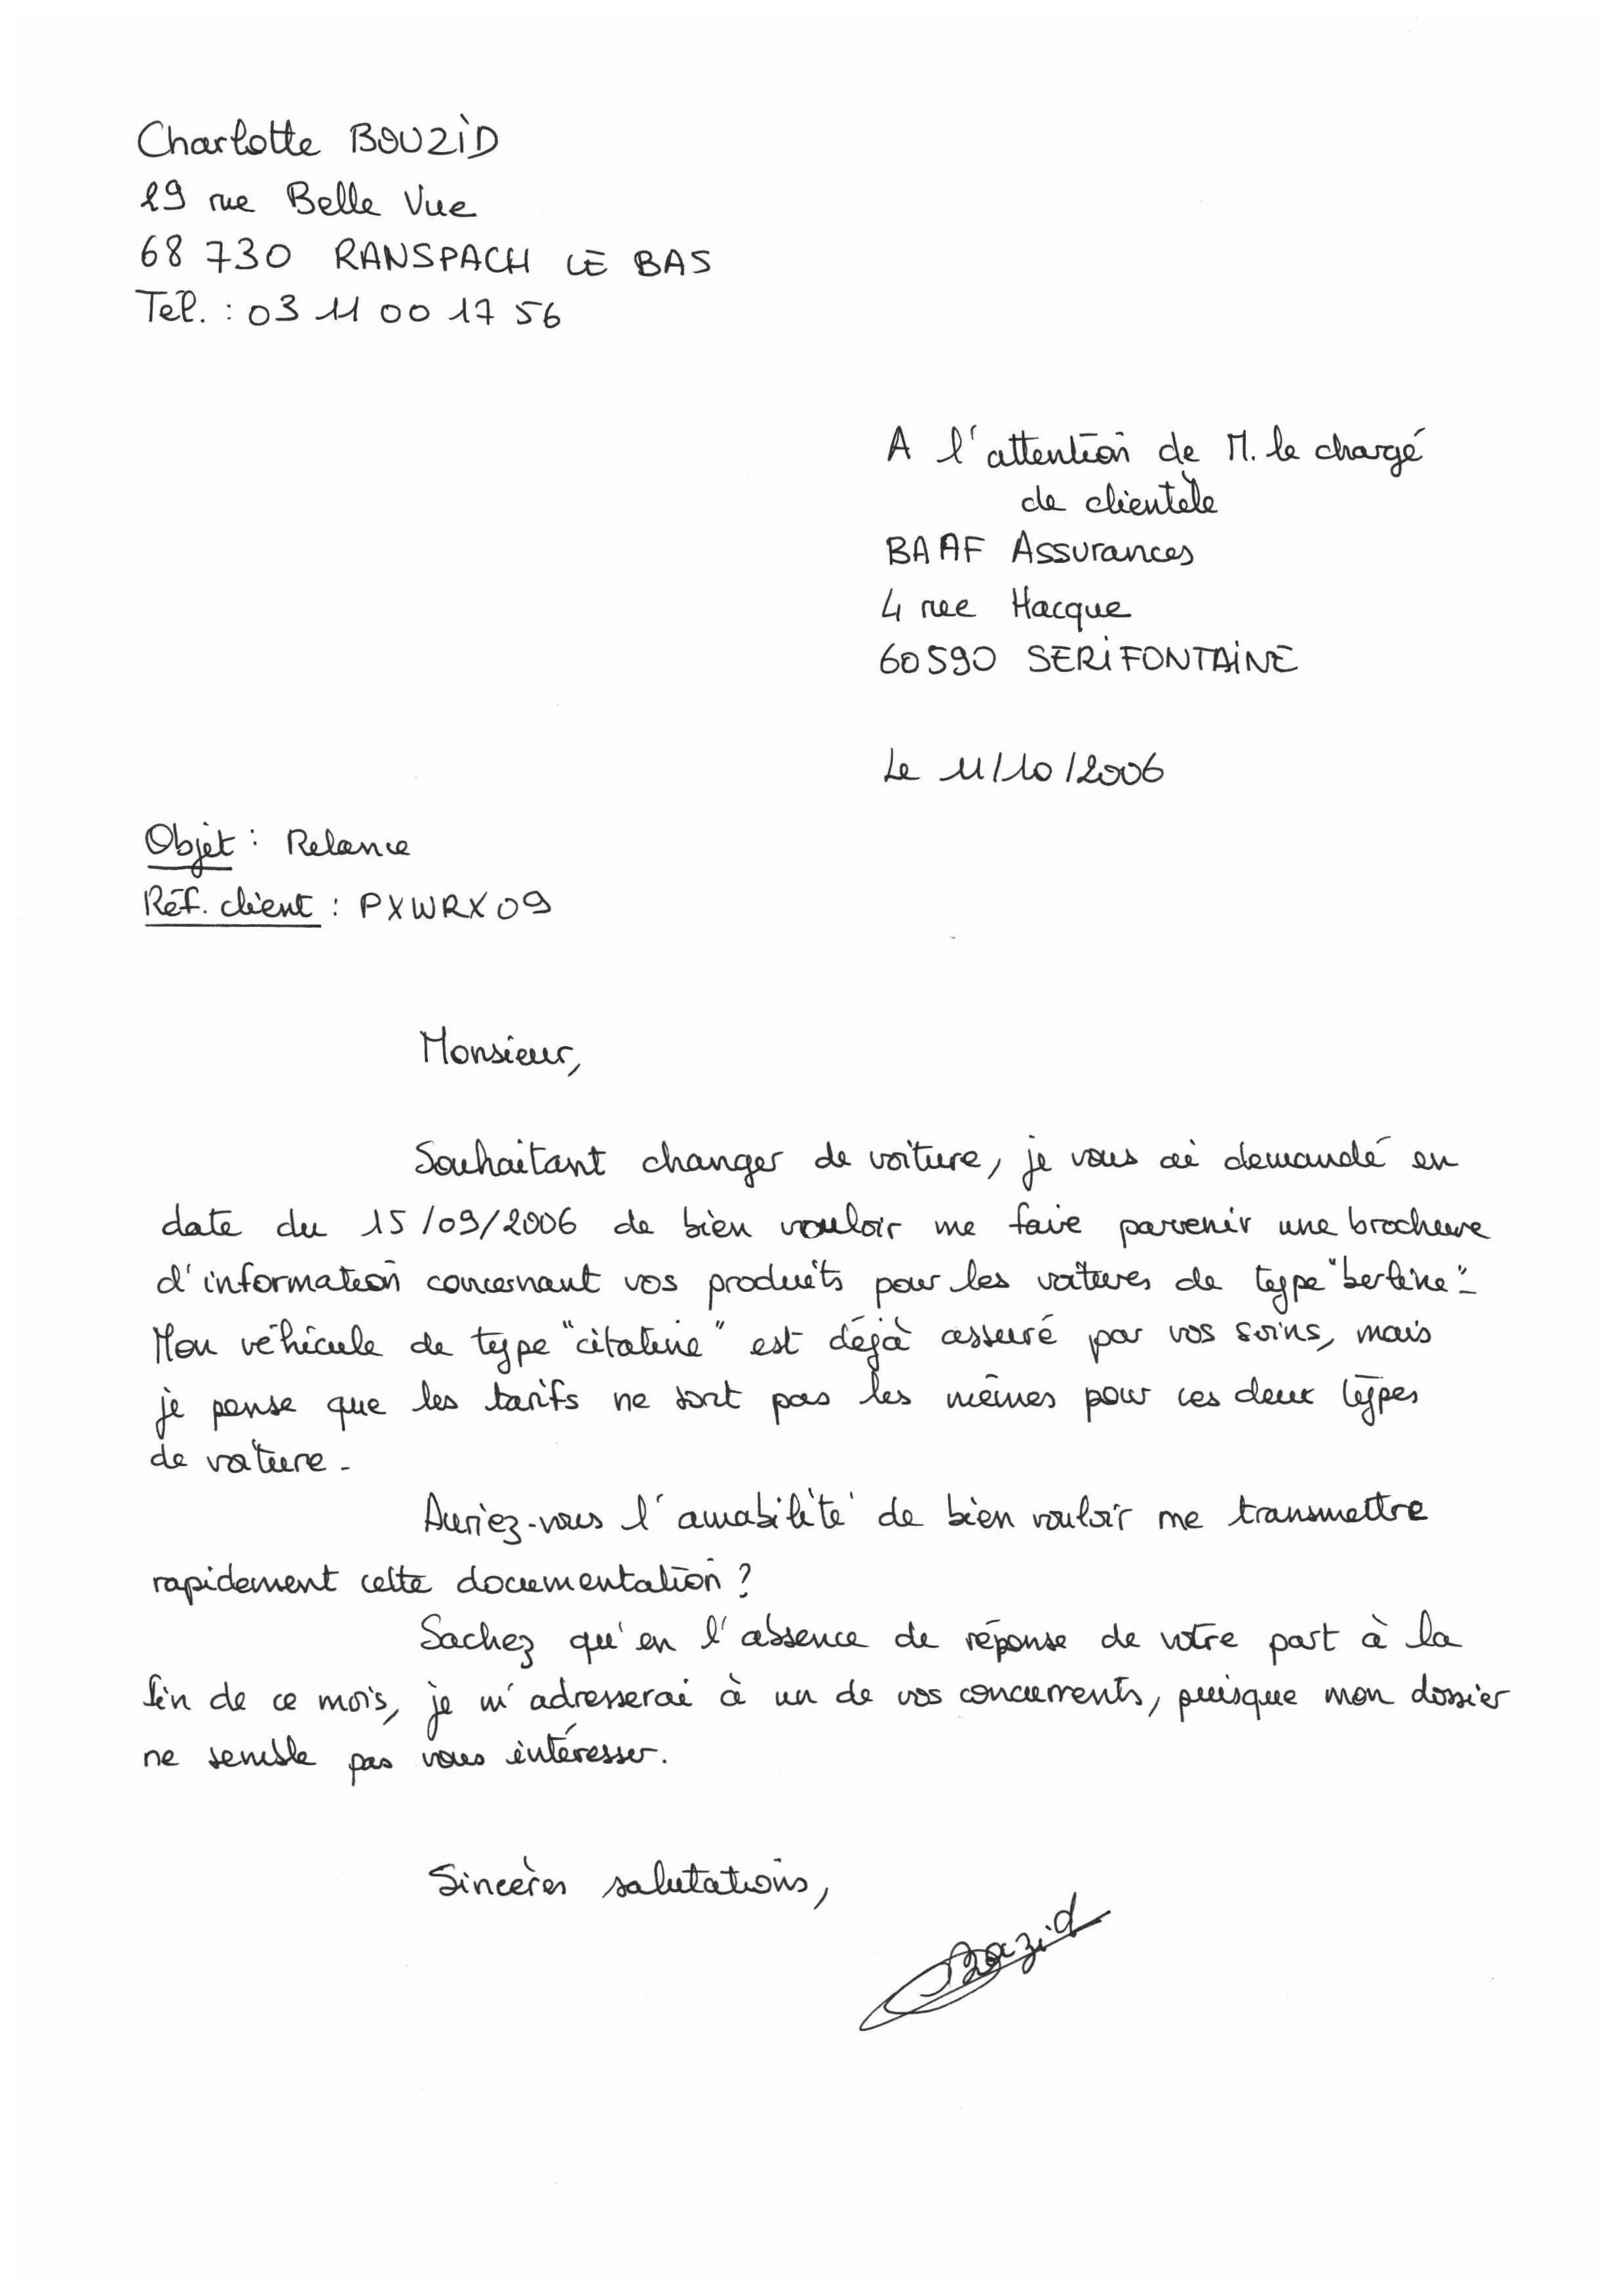 Charlotte BOUZID
29 rue Belle Vue
68 730 RANSPACH LE BAS
Tél. : 03 11 00 17 56
A l'attention de M. le chargé
de clientèle
BAAF Assurances
4 rue Hacque
60590 SERIFONTAINE
Le 11/10/2006
Objet : Relance
Réf. client : PXWRX09
Monsieur,
Souhaitant changer de voiture, je vous ai demandé en
date du 15/09/2006 de bien vouloir me faire parvenir une brochure
d'information concernant vos produits pour les voitures de type "berline".
Mon véhicule de type "citadine" est déjà assuré par vos soins, mais
je pense que les tarifs ne sont pas les mêmes pour ces deux types
de voiture.
Auriez-vous l'amabilité de bien vouloir me transmettre
rapidement cette documentation ?
Sachez qu'en l'absence de réponse de votre part à la
fin de ce mois, je m'adresserai à un de vos concurrents, puisque mon dossier
ne semble pas vous intéresser.
Sincères salutations,
Bouzid